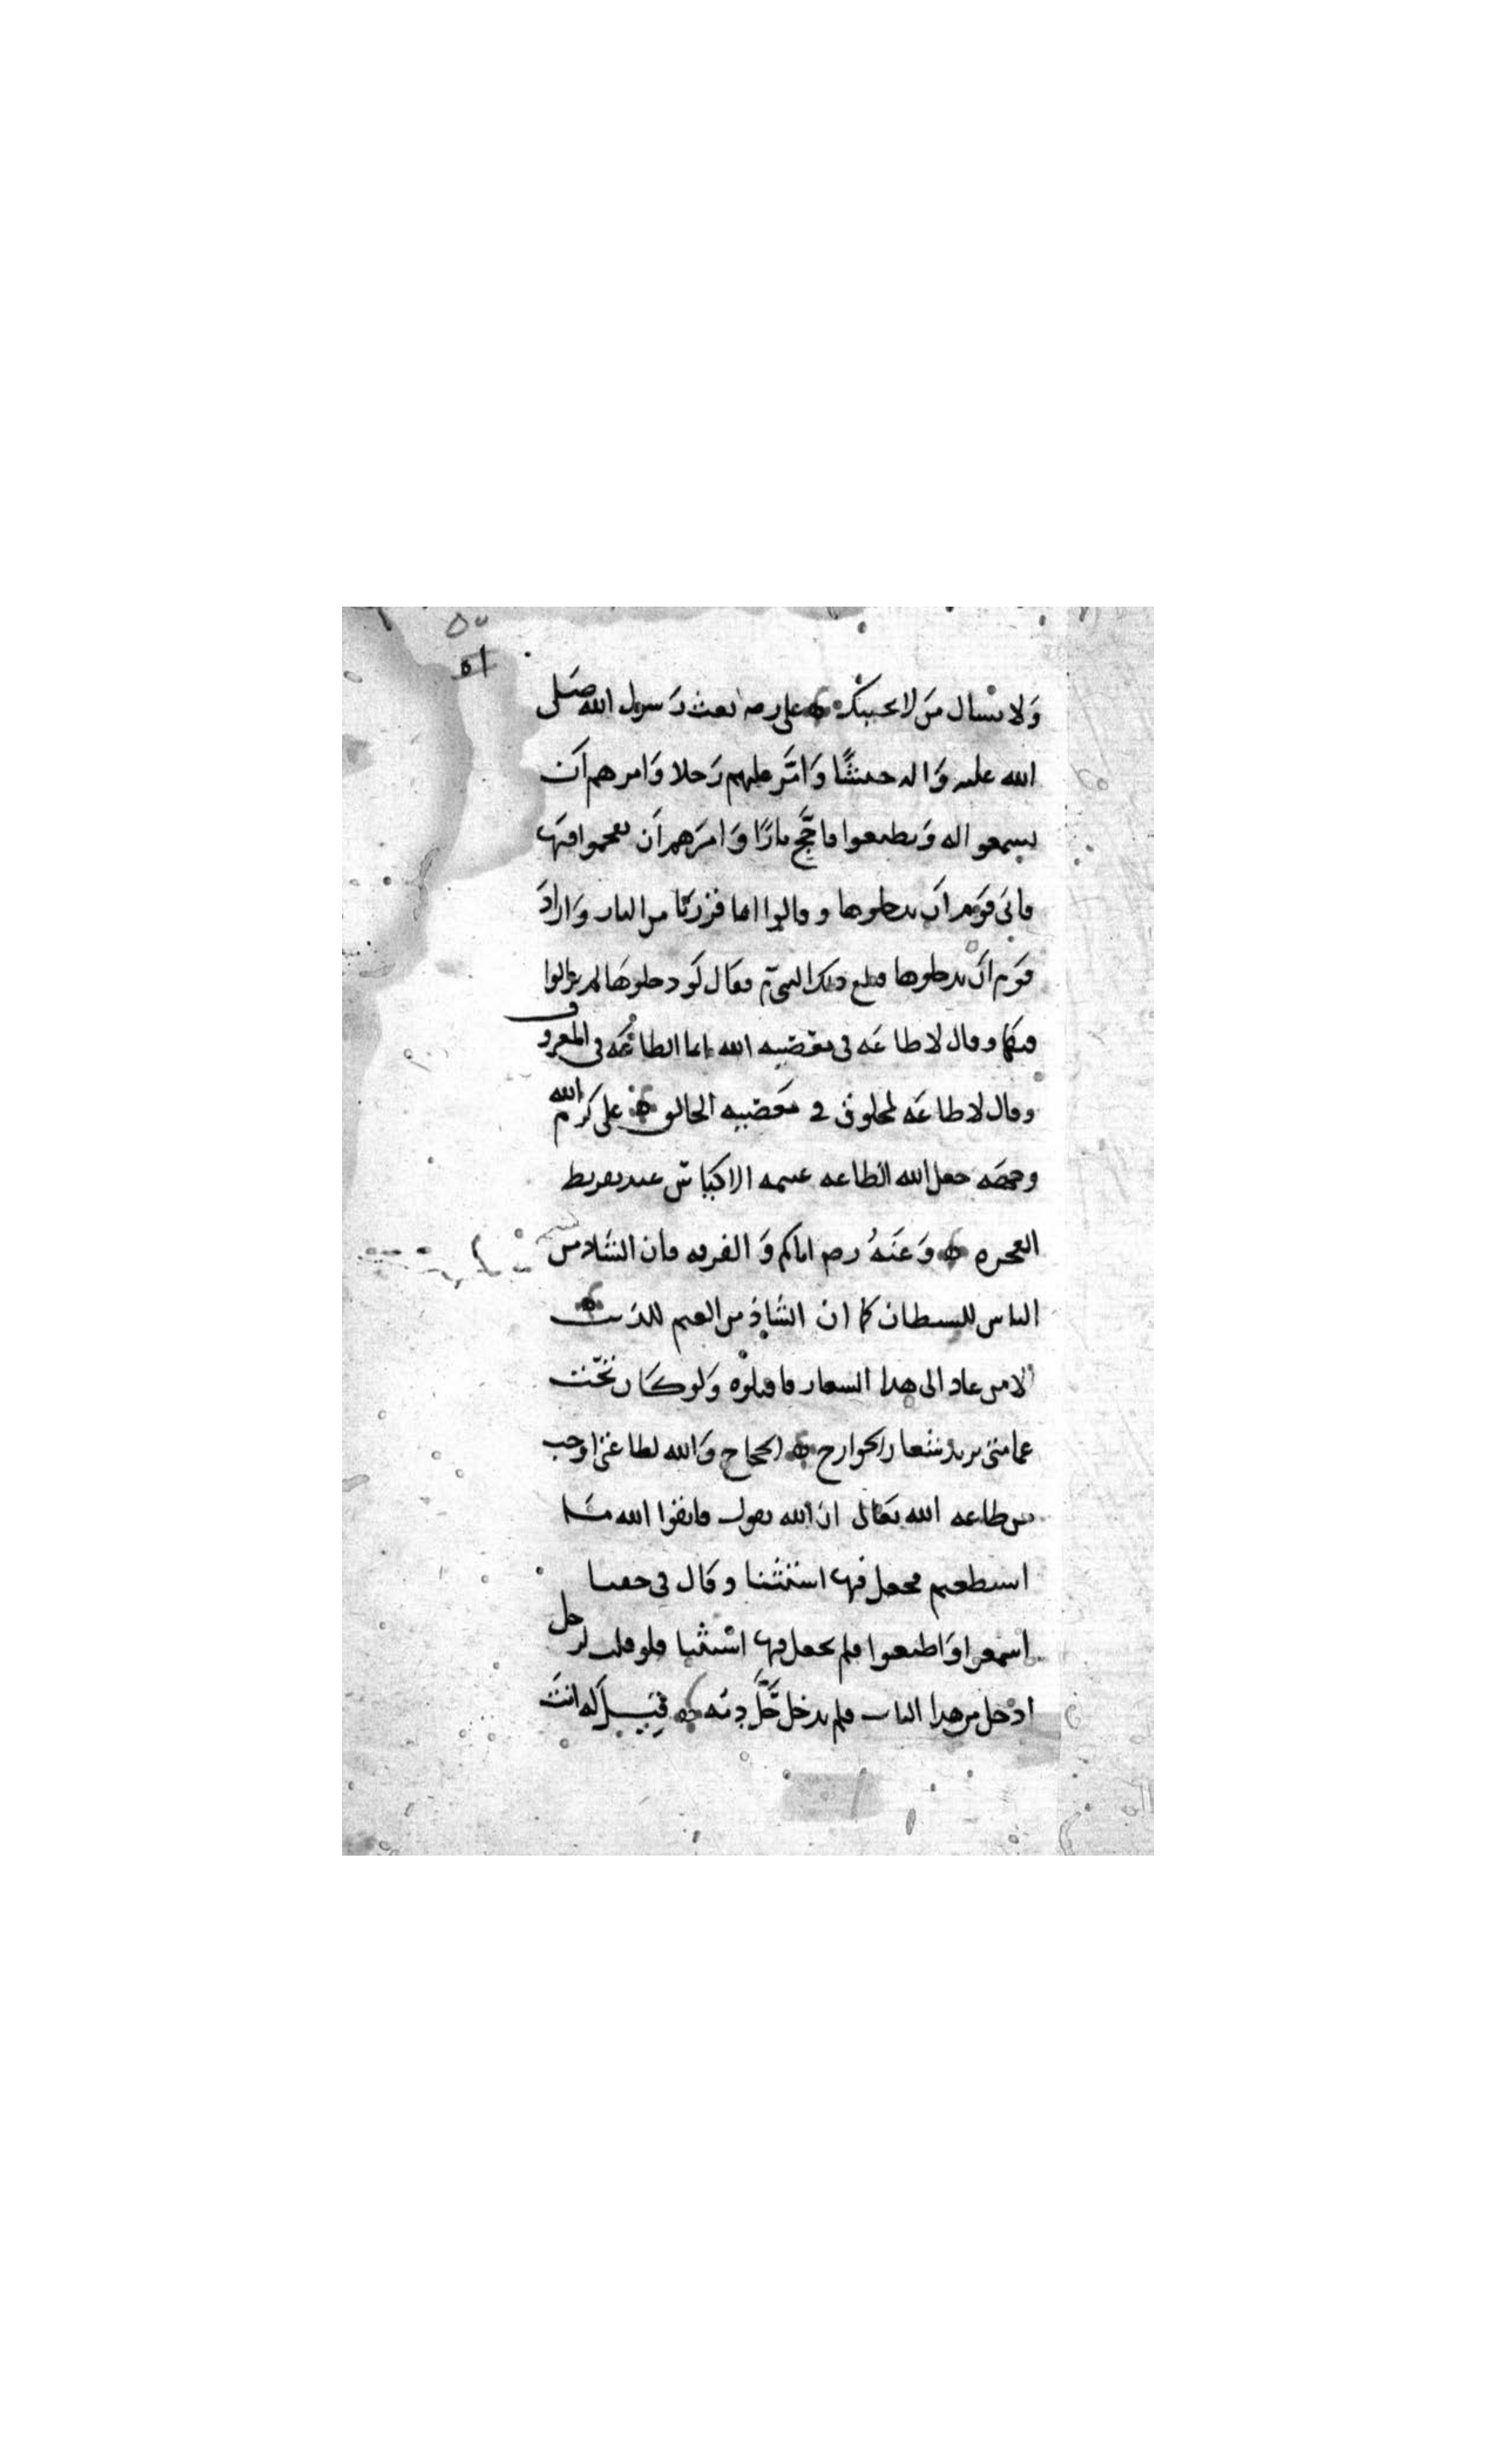 ٥٠
٥١
وَلا تسأل مَن لا يجيبك علي رضه بعث رَسول الله صَلى
الله عليه وَاله جيشًا وَامَّر عليهم رَجلا وَامرهم اَن
يسمعوا له وَيطيعوا فاجَّج نارًا وَامرَهم اَن يقحموا فيهَا
فابَى قوَم اَن يدخلوها وقالوا انما فررنَا من النار وَارادَ
قوَم اَن يدخلوها فبلغ ذلك النبي فقال لَو دخلوهَا لم يزالوا
فيها وقال لا طاعَه في معَصيه الله انما الطاعَه في المعروف
وقال لا طاعَه لمخلوق في معَصيه الخالق علي كرم الله
وجهَه جعل الله الطاعه غنيمه الاكيَاس عند تفريط
العجزه وَعَنهُ رضه اياكم وَ الفرقه فان الشَاذ من
الناس للشيطان كما ان الشَاذ من الغنم للذئب
الا من عاد الى هذا الشعار فاقتلوُه وَلو كَان تحت
عمامتي يريد شعار الخوارج الحجاج وَالله لطاعتي اوجب
من طاعه الله تعَالى ان الله يقول فاتقوا الله مَا
استطعتم فجعل فيها استثنا وقال في حقنا
اسمعوا وَاطيعوا فلم يجعل فيها استثنا فلو قلت لرجل
ادخل من هذا الباب فلم يدخل حَلَّ دمه قيل له انتَ